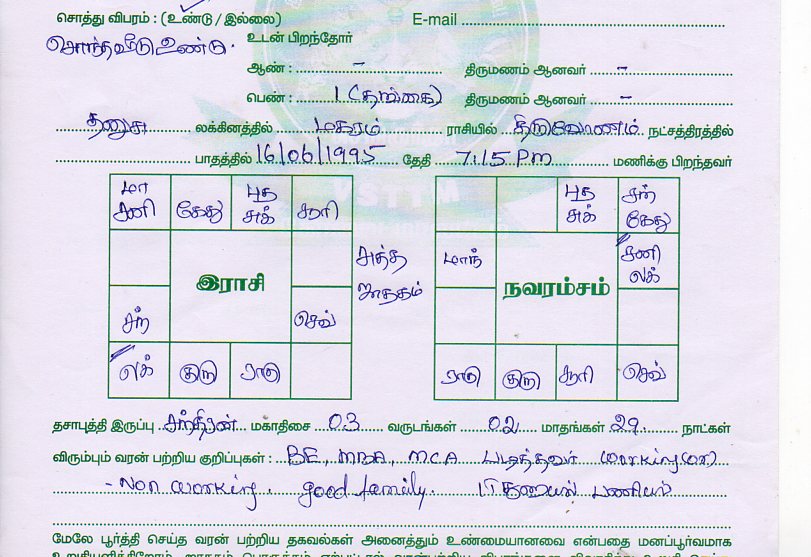 சொத்து விபரம் : (உண்டு / இல்லை) E-mail
சொந்தவீடு உண்டு. உடன் பிறந்தோர்
ஆண் : - திருமணம் ஆனவர் -
பெண் : 1 (தங்கை) திருமணம் ஆனவர் -
தனுசு லக்கினத்தில் மகரம் ராசியில் திருவோணம் நட்சத்திரத்தில்
பாதத்தில் 16/06/1995 தேதி 7:15 Pm மணிக்கு பிறந்தவர்
மா சனி கேது புத சுக் சூரி
சந்
செவ்
லக் குரு ராகு
இராசி
அத்த ஜாதகம்
புத சுக் சந் கேது
மாந் சனி லக்
நவரம்சம்
ராகு குரு சூரி செவ்
தசாபுத்தி இருப்பு சந்திரன் மகாதிசை 03 வருடங்கள் 02 மாதங்கள் 29 நாட்கள்
விரும்பும் வரன் பற்றிய குறிப்புகள் : BE, MBA, MCA படித்தவர் working
- Non working. good family. IT துறையில் பணியில்
மேலே பூர்த்தி செய்த வரன் பற்றிய தகவல்கள் அனைத்தும் உண்மையானவை என்பதை மனப்பூர்வமாக